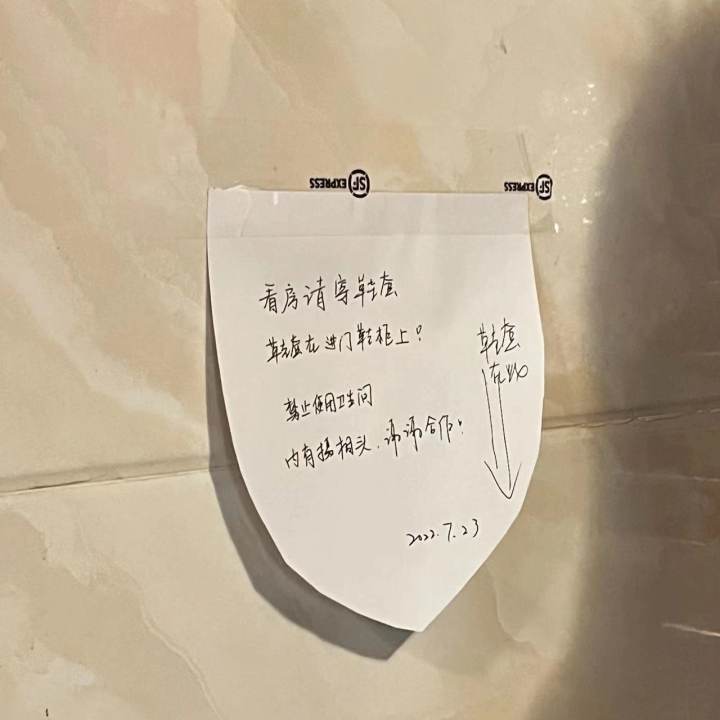 SF EXPRESS
SF EXPRESS
看房请穿鞋套
鞋套在进门鞋柜上!
禁止使用卫生间
内有摄相头、谢谢合作!
鞋套
在此
2022.7.23